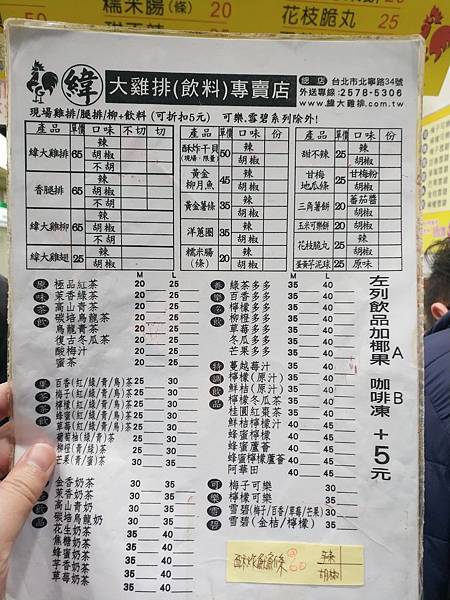 糯米腸(條) 20
花枝脆丸 25
緯 大雞排(飲料)專賣店
總店 台北市北寧路34號
外送專線:2578-5306
www.緯大雞排.com.tw
現場雞排/腿排/柳+飲料(可折扣5元) 可樂.雪碧系列除外!
產品 單價 口味 不切 切
緯大雞排 65 辣 胡椒 不胡
香腿排 65 辣 胡椒 不胡
緯大雞柳 65 辣 胡椒 不胡
緯大雞翅 25 辣 胡椒
產品 單價 口味 份
酥炸干貝(現場、限量) 50 辣 胡椒
黃金柳月魚 45 辣 胡椒
黃金薯條 35 辣 胡椒
洋蔥圈 35 辣 胡椒
糯米腸(條) 20 辣 胡椒
產品 單價 口味 份
甜不辣 25 辣 胡椒
甘梅地瓜條 25 甘梅粉 胡椒
三角薯餅 20 蕃茄醬 胡椒
玉米可樂餅 20 胡椒
花枝脆丸 25 辣 胡椒
蛋黃芋泥球 25 原味
原味茶飲 M L
極品紅茶 20 25
茉香綠茶 20 25
高山青茶 20 25
碳培烏龍茶 20 25
烏龍青茶 20 25
復古冬瓜茶 20 25
酸梅汁 20 25
蜜茶 20 25
果茶茶飲
百香(紅/綠/青/烏)茶 25 30
梅子(紅/綠/青/烏)茶 25 30
檸檬(紅/綠/青/烏)茶 25 30
蜂蜜(紅/綠/青/烏)茶 25 30
草莓(紅/綠/青/烏)茶 25 30
葡萄柚(綠/青)茶 25 30
柳橙(青)茶 25 30
芒果(青/蜜)茶 25 30
金香奶茶 30 35
茉香奶茶 30 35
高山青奶 30 35
碳培烏龍奶 30 35
花生奶茶 35 40
焦糖奶茶 35 40
蜂蜜奶茶 35 40
芋香奶茶 35 40
草莓奶茶 35 40
M L
綠茶多多 35 40
百香多多 35 40
檸檬多多 35 40
柳橙多多 35 40
草莓多多 35 40
冬瓜多多 35 40
芒果多多 35 40
特調飲品
蔓越莓汁 35 40
檸檬(原汁) 35 40
鮮桔(原汁) 35 40
檸檬冬瓜茶 35 40
桂圓紅棗茶 35 40
鮮桔檸檬汁 40 45
蜂蜜檸檬 40 45
蜂蜜蘆薈 40 45
蜂蜜檸檬蘆薈 40 45
阿華田 40 45
可樂雪碧
梅子可樂 30 35
檸檬可樂 30 35
雪碧(梅子/百香/草莓/芒果) 30 35
雪碧(金桔/檸檬) 30 35
左列飲品加椰果A 咖啡凍B +5元
酥炸魷魚條 60 辣 胡椒